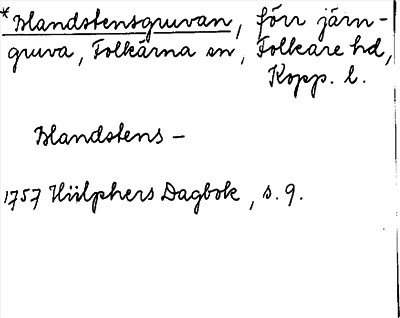 *Blandstensgruvan, förr järn-
gruva, Folkärna sn, Folkare hd,
Kopp. l.
Blandstens-
1757 Hülphers Dagbok, s. 9.